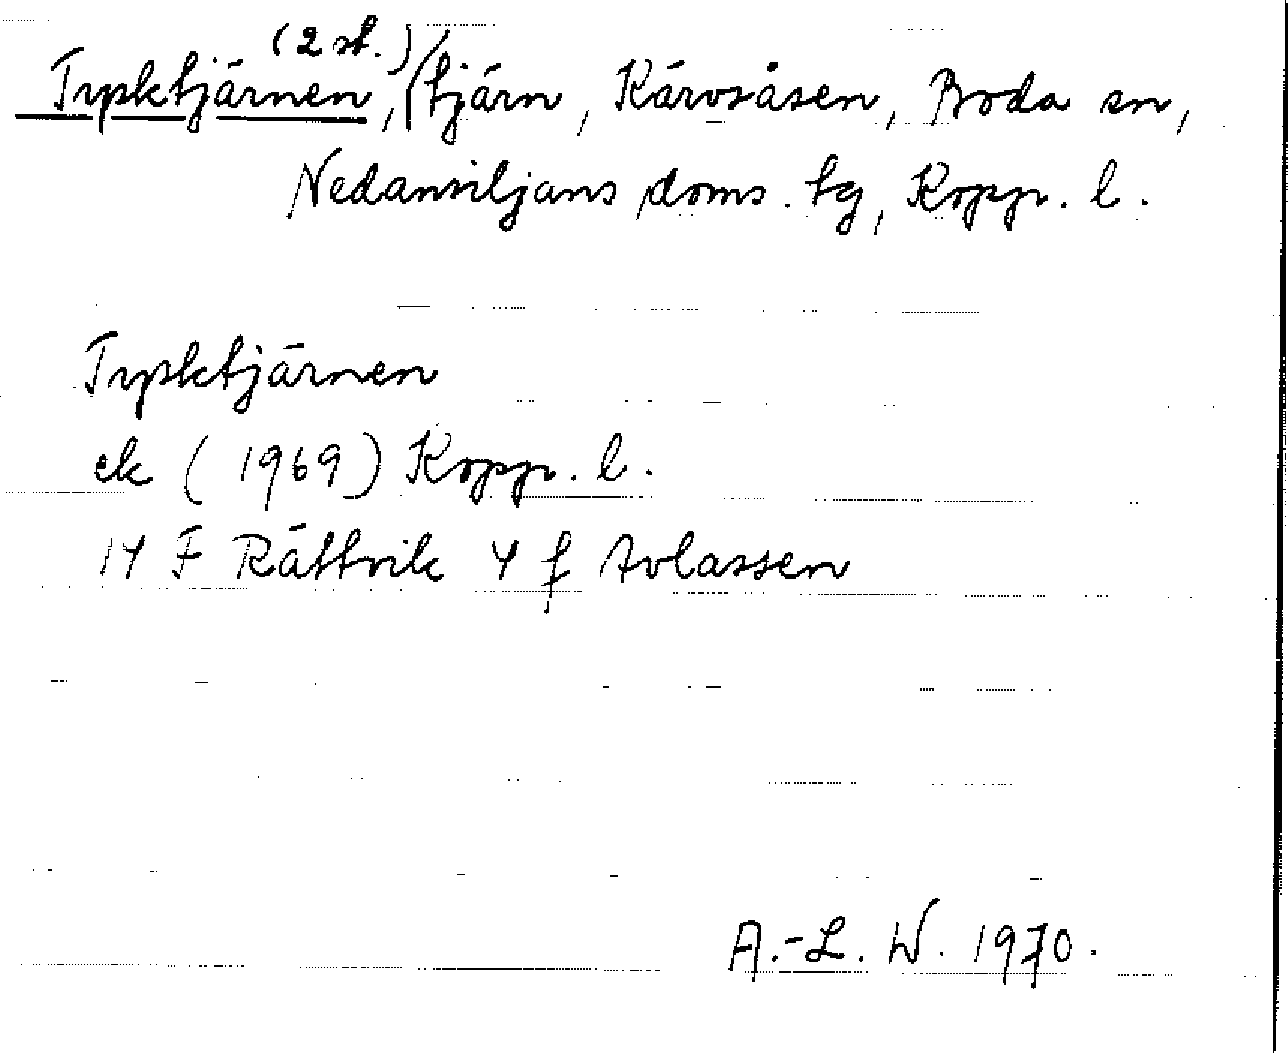 (2 st.)
Tysktjärnen, tjärn, Kärvsåsen, Boda sn,
Nedansiljans doms. tg, Kopp. l.
Tysktjärnen
ek (1969) Kopp. l.
14 F Rättvik 4 f Avlassen
A.-L. W. 1970.